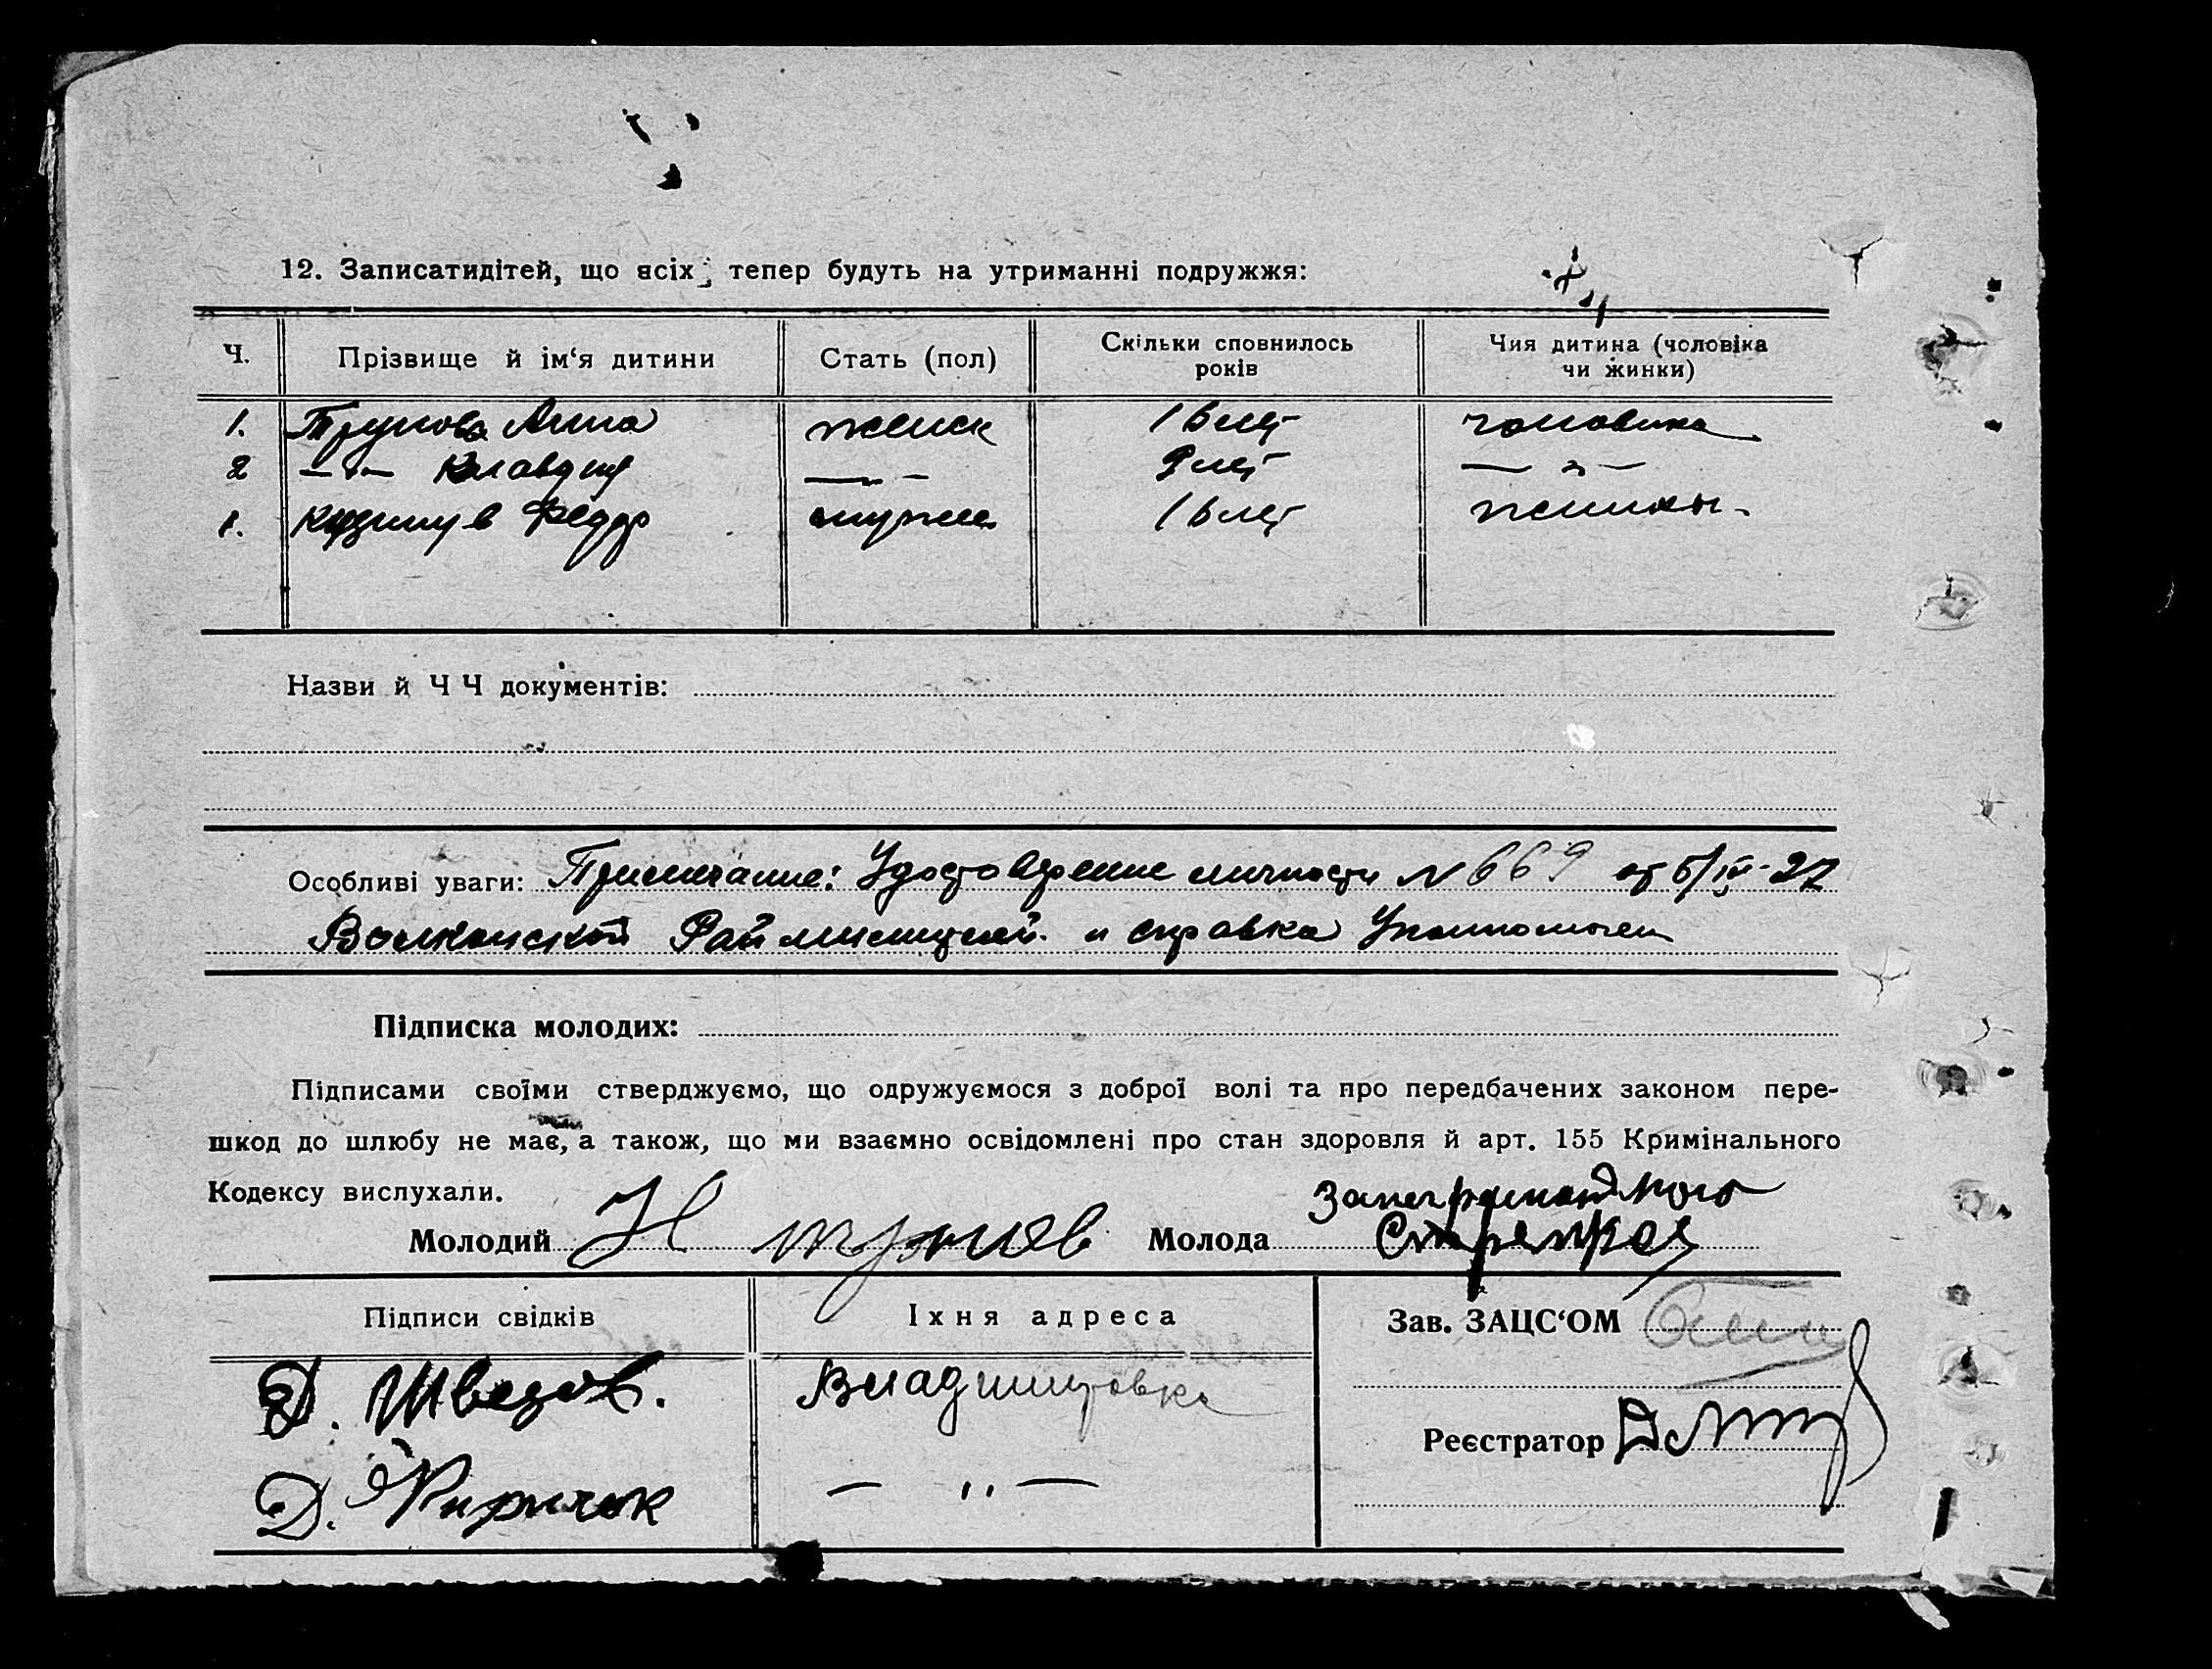 12. Записатидітей, що всіх тепер будуть на утриманні подружжя:
Ч. Прізвище й ім‘я дитини Стать (пол) Скільки сповнилось років Чия дитина (чоловіка чи жинки)
1. Трунова Анна женск 16 лет чоловика
2 —"— Клавдия —"— 9 лет —"—
1. Федор 16 лет жинки
Назви й Ч Ч документів:
Особливі уваги: Примечание: Удостоверение личности N 669 от
Раймилицией и справка
Підписка молодих:
Підписами своїми стверджуємо, що одружуємося з доброї волі та про передбачених законом пере-
шкод до шлюбу не має, а також, що ми взаємно освідомлені про стан здоровля й арт. 155 Кримінального
Кодексу вислухали.
Молодий Н Трунов Молода
Підписи свідків Їхня адреса Зав. ЗАЦС‘ОМ
Д. Шведов. Владимировка
Реєстратор
Д. Киричок — " —